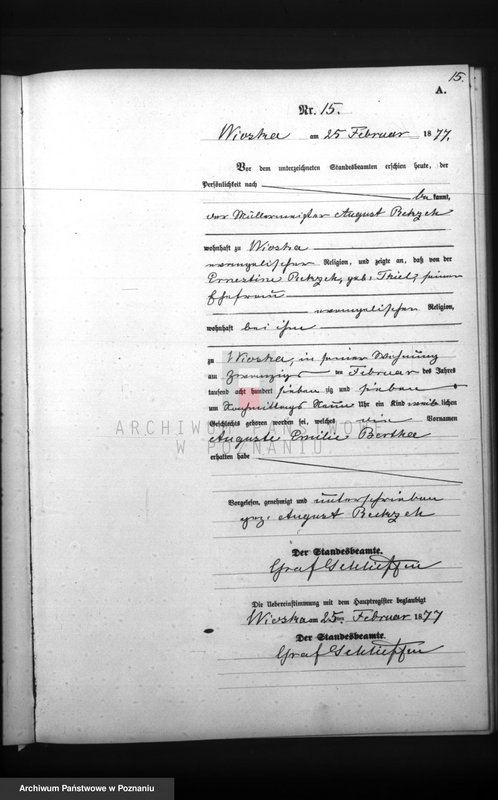 15.
A.
Nr. 15.
Wioska am 25 Februar 1877.
Vor dem unterzeichneten Standesbeamten erschien heute, der
Persönlichkeit nach
be kannt,
der Müllermeister August
wohnhaft zu Wioska
evangelischer Religion, und zeigte an, daß von der
Ernestine geb: Thiel, seiner
Ehefrau
evangelischer Religion,
wohnhaft bei ihm
zu Wioska, in seiner Wohnung
am ten Februar des Jahres
tausend acht hundert sieben zig und sieben
um Nachmittags Neun Uhr ein Kind weib lichen
Geschlechts geboren worden sei, welches die Vornamen
Auguste Emilie Bertha
erhalten habe
ARCHIWUM PAŃSTWOWE
W POZNANIU
Vorgelesen, genehmigt und unterschrieben
gez: August
Der Standesbeamte.
Graf Schlieffen
Die Uebereinstimmung mit dem Hauptregister beglaubigt
Wioska am 25 Februar 1877
Der Standesbeamte.
Graf Schlieffen
Archiwum Państwowe w Poznaniu